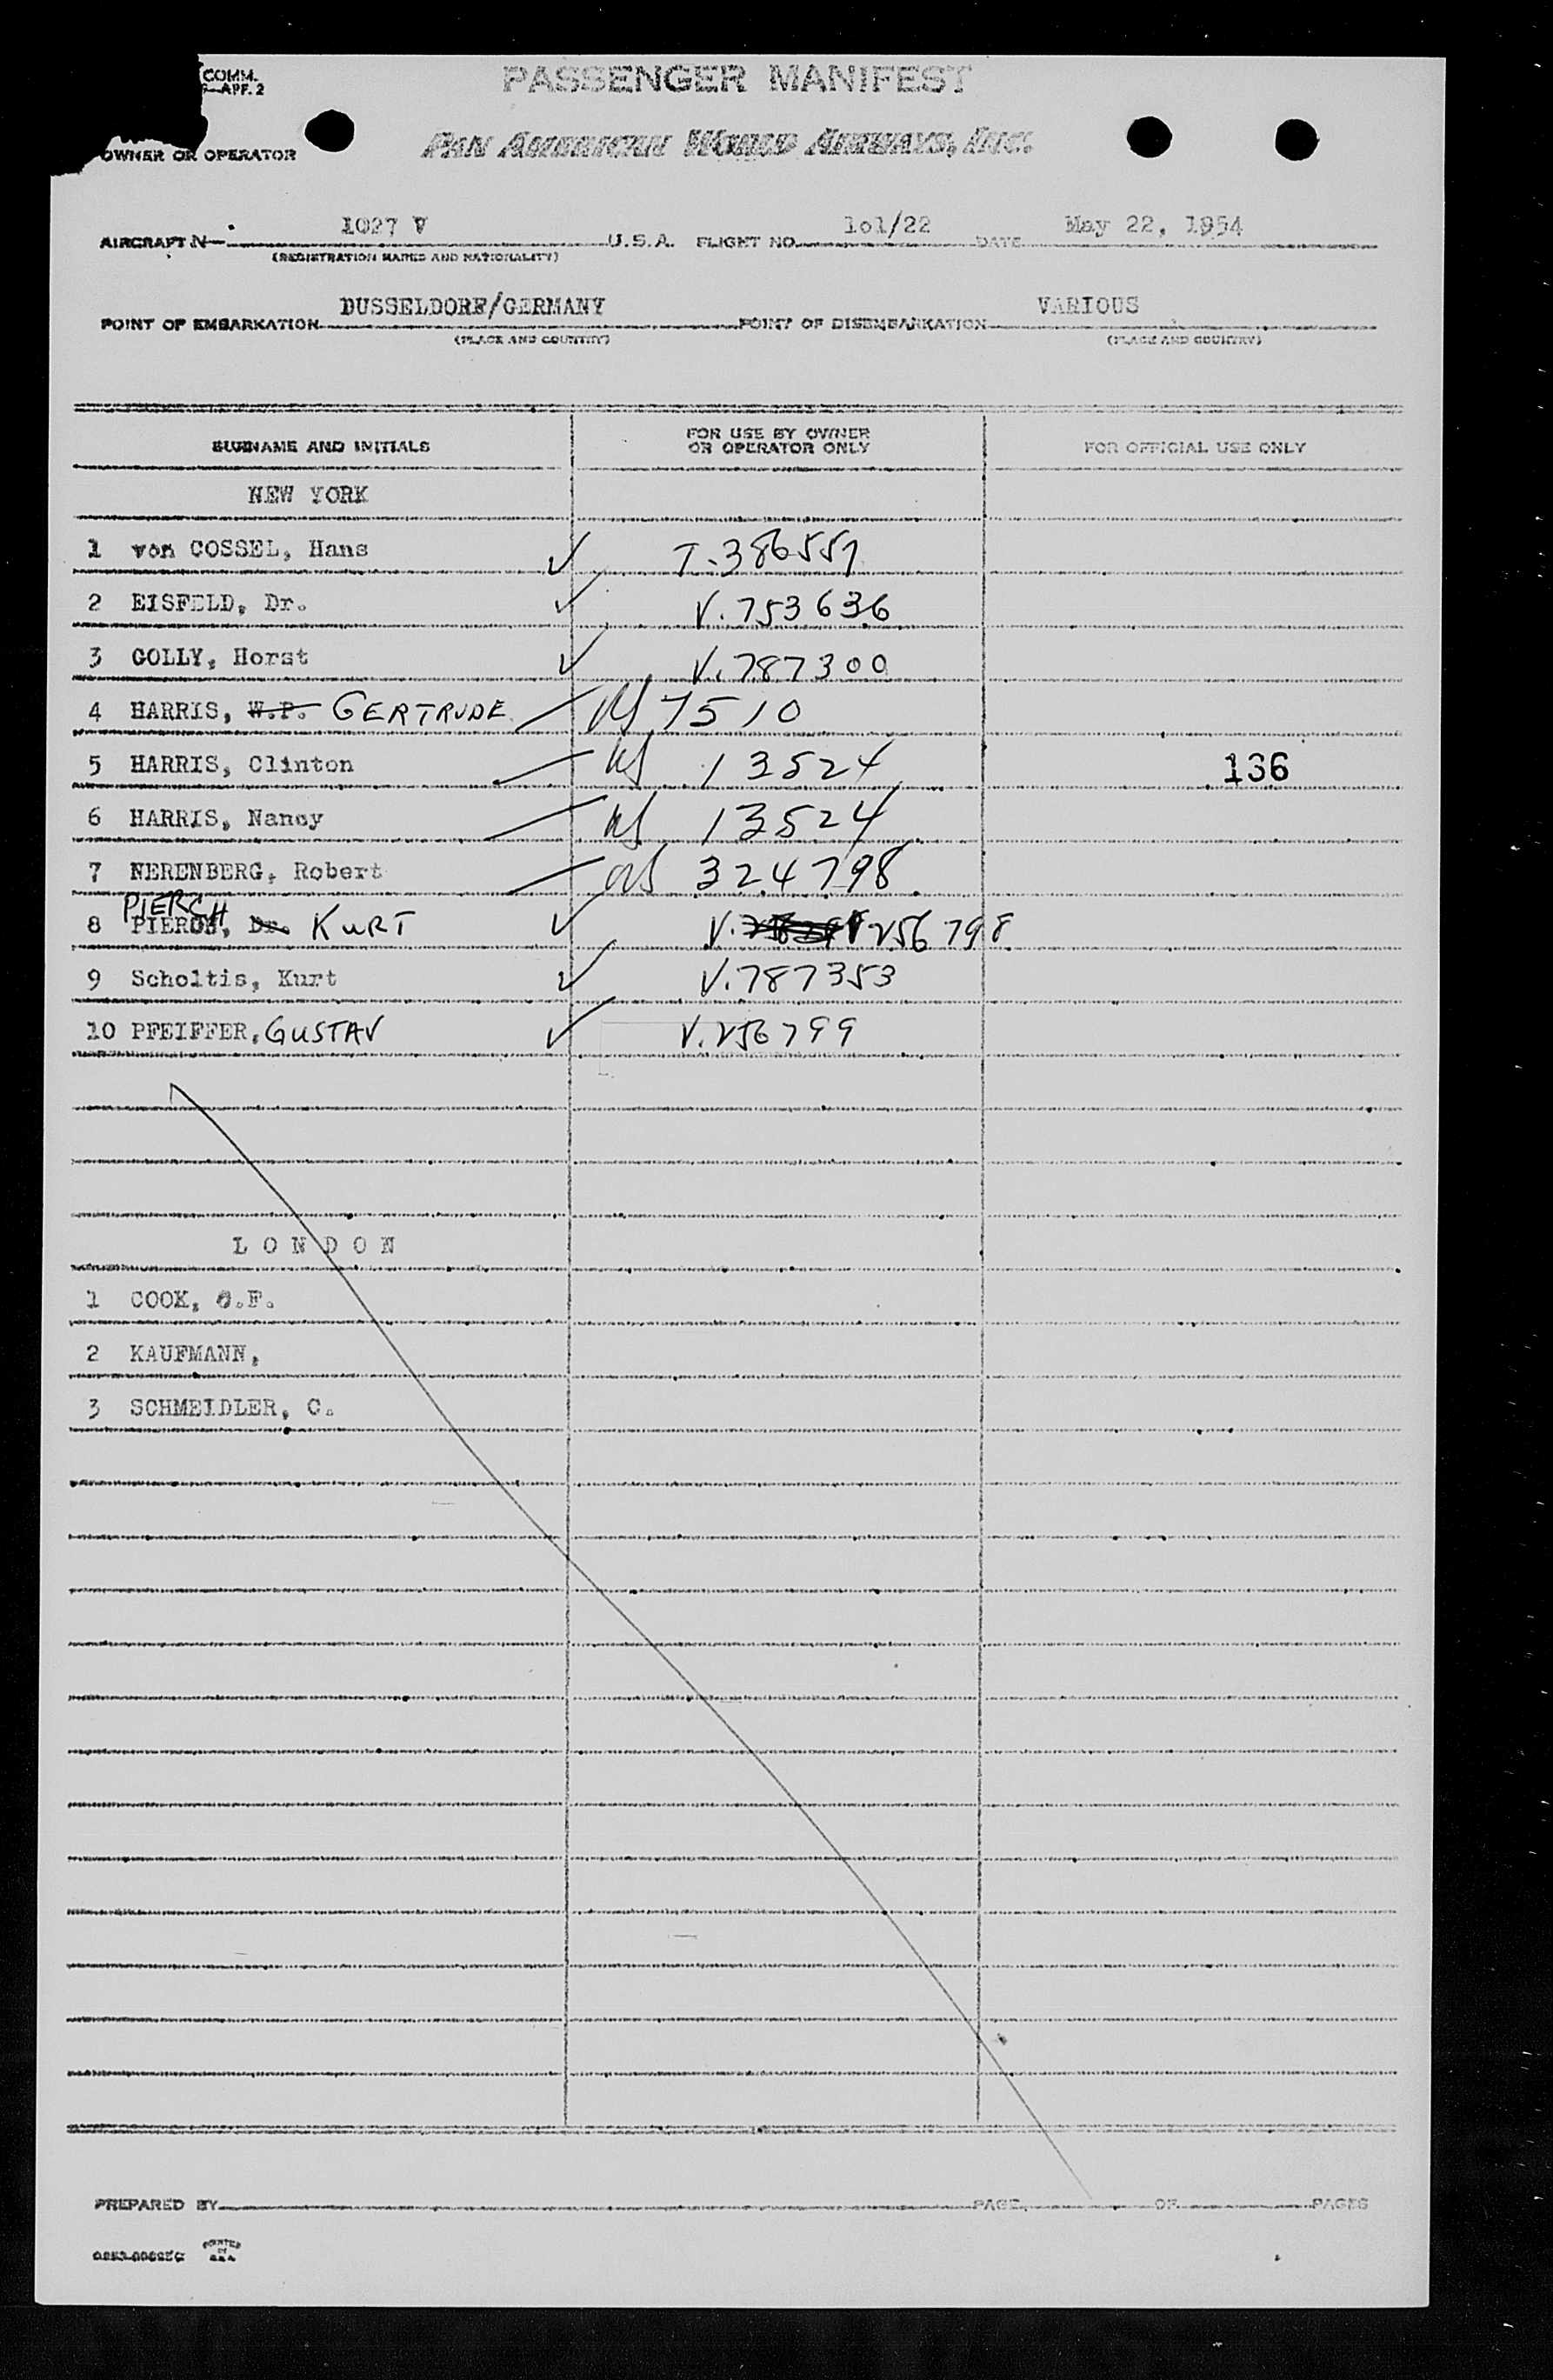 COMM.
—APF. 2
PASSENGER MANIFEST
OWNER OR OPERATOR
PAN AMERICAN WORLD AIRWAYS, INC.
AIRCRAFT N— 1027 V U.S.A. FLIGHT NO. 101/22 DATE May 22, 1954
(REGISTRATION MARKS AND NATIONALITY)
POINT OF EMBARKATION DUSSELDORF/GERMANY POINT OF DISEMBARKATION VARIOUS
(PLACE AND COUNTRY) (PLACE AND COUNTRY)
SURNAME AND INITIALS FOR USE BY OWNER OR OPERATOR ONLY FOR OFFICIAL USE ONLY
NEW YORK
1 von COSSEL, Hans ✓ T.386557
2 EISFELD, Dr. ✓ V.753636
3 GOLLY, Horst ✓ V.787300
4 HARRIS, W.P. GERTRUDE 7510
5 HARRIS, Clinton 13524 136
6 HARRIS, Nancy 13524
7 NERENBERG, Robert 324798
PIERCH
8 Dr. KURT ✓ V. 256798
9 Scholtis, Kurt ✓ V.787353
10 PFEIFFER, GUSTAV ✓ V.256799
LONDON
1 COOK, F.
2 KAUFMANN,
3 SCHMEIDLER, C.
PREPARED BY PAGE OF PAGES
PRINTED IN U.S.A.